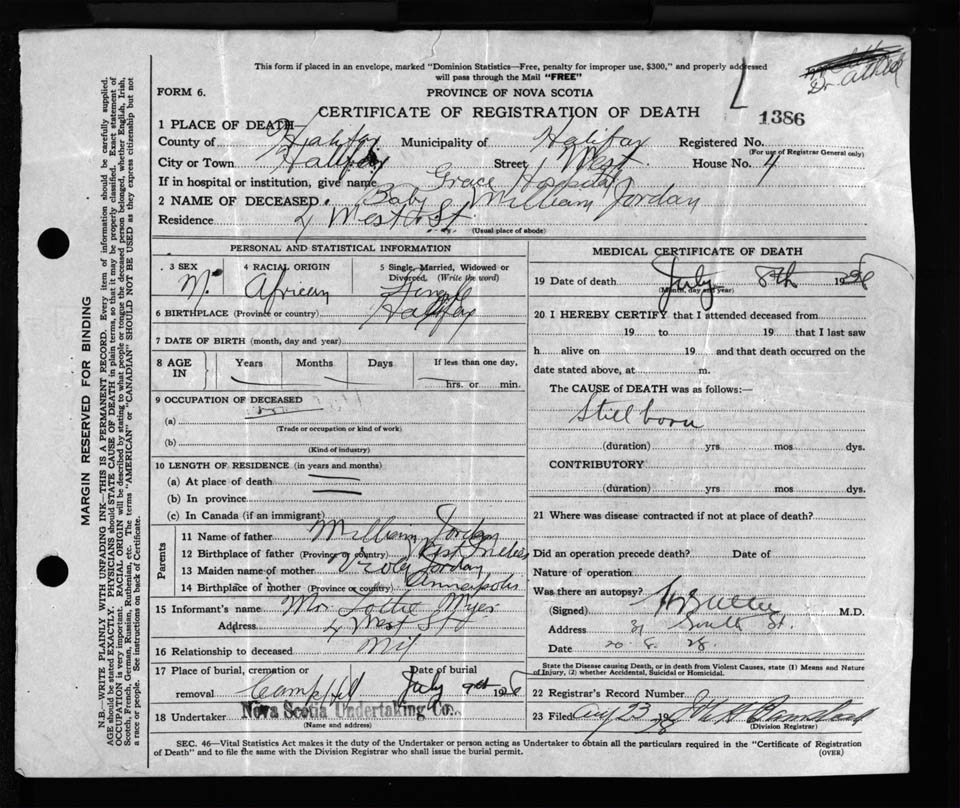 This form if placed in an envelope, marked "Dominion Statistics—Free, penalty for improper use, $300," and properly addressed
will pass through the Mail "FREE"
Dr. Atlee
FORM 6.
PROVINCE OF NOVA SCOTIA
CERTIFICATE OF REGISTRATION OF DEATH
1386
1 PLACE OF DEATH—
County of Halifax Municipality of Halifax Registered No.
(For use of Registrar General only)
City or Town Halifax Street West House No. 4
If in hospital or institution, give name Grace Hospital
2 NAME OF DECEASED Baby William Jordan
Residence 4 West St.
(Usual place of abode)
PERSONAL AND STATISTICAL INFORMATION
3 SEX M. 4 RACIAL ORIGIN African 5 Single, Married, Widowed or Divorced. (Write the word) Single
6 BIRTHPLACE (Province or country) Halifax
7 DATE OF BIRTH (month, day and year)
8 AGE IN Years Months Days If less than one day, hrs. or min.
9 OCCUPATION OF DECEASED
(a)
(Trade or occupation or kind of work)
(b)
(Kind of industry)
10 LENGTH OF RESIDENCE (in years and months)
(a) At place of death
(b) In province
(c) In Canada (if an immigrant)
Parents
11 Name of father William Jordan
12 Birthplace of father (Province or country) West Indies
13 Maiden name of mother Viola Jordan
14 Birthplace of mother (Province or country) Annapolis
15 Informant's name Mrs. Lottie Myer
Address 4 West St
16 Relationship to deceased Nil
17 Place of burial, cremation or removal Camp Hill Date of burial July 9th 1928
18 Undertaker Nova Scotia Undertaking Co.
(Name and address)
MEDICAL CERTIFICATE OF DEATH
19 Date of death July 8th 1928
(Month, day and year)
20 I HEREBY CERTIFY that I attended deceased from
19 to 19 that I last saw
h alive on 19 and that death occurred on the
date stated above, at m.
The CAUSE of DEATH was as follows:—
Still born
(duration) yrs mos dys.
CONTRIBUTORY
(duration) yrs mos dys.
21 Where was disease contracted if not at place of death?
Did an operation precede death? Date of
Nature of operation
Was there an autopsy?
(Signed) H B Atlee M.D.
Address 31 South St.
Date 20. 8. 28.
State the Disease causing Death, or in death from Violent Causes, state (1) Means and Nature
of Injury, (2) whether Accidental, Suicidal or Homicidal.
22 Registrar's Record Number
23 Filed Aug 23 1928
(Division Registrar)
SEC. 46—Vital Statistics Act makes it the duty of the Undertaker or person acting as Undertaker to obtain all the particulars required in the "Certificate of Registration
of Death" and to file the same with the Division Registrar who shall issue the burial permit.
(OVER)
MARGIN RESERVED FOR BINDING
N.B. WRITE PLAINLY WITH UNFADING INK—THIS IS A PERMANENT RECORD. Every item of information should be carefully supplied.
AGE should be stated EXACTLY. PHYSICIANS should STATE CAUSE OF DEATH in plain terms, so that it may be properly classified. Exact statement of
OCCUPATION is very important. RACIAL ORIGIN will be described by stating to what people or tongue the deceased person belonged, whether English, Irish,
Scotch, French, German, Russian, Ruthenian, etc. The terms "AMERICAN" or "CANADIAN" SHOULD NOT BE USED as they express citizenship but not
a race or people. See instructions on back of Certificate.